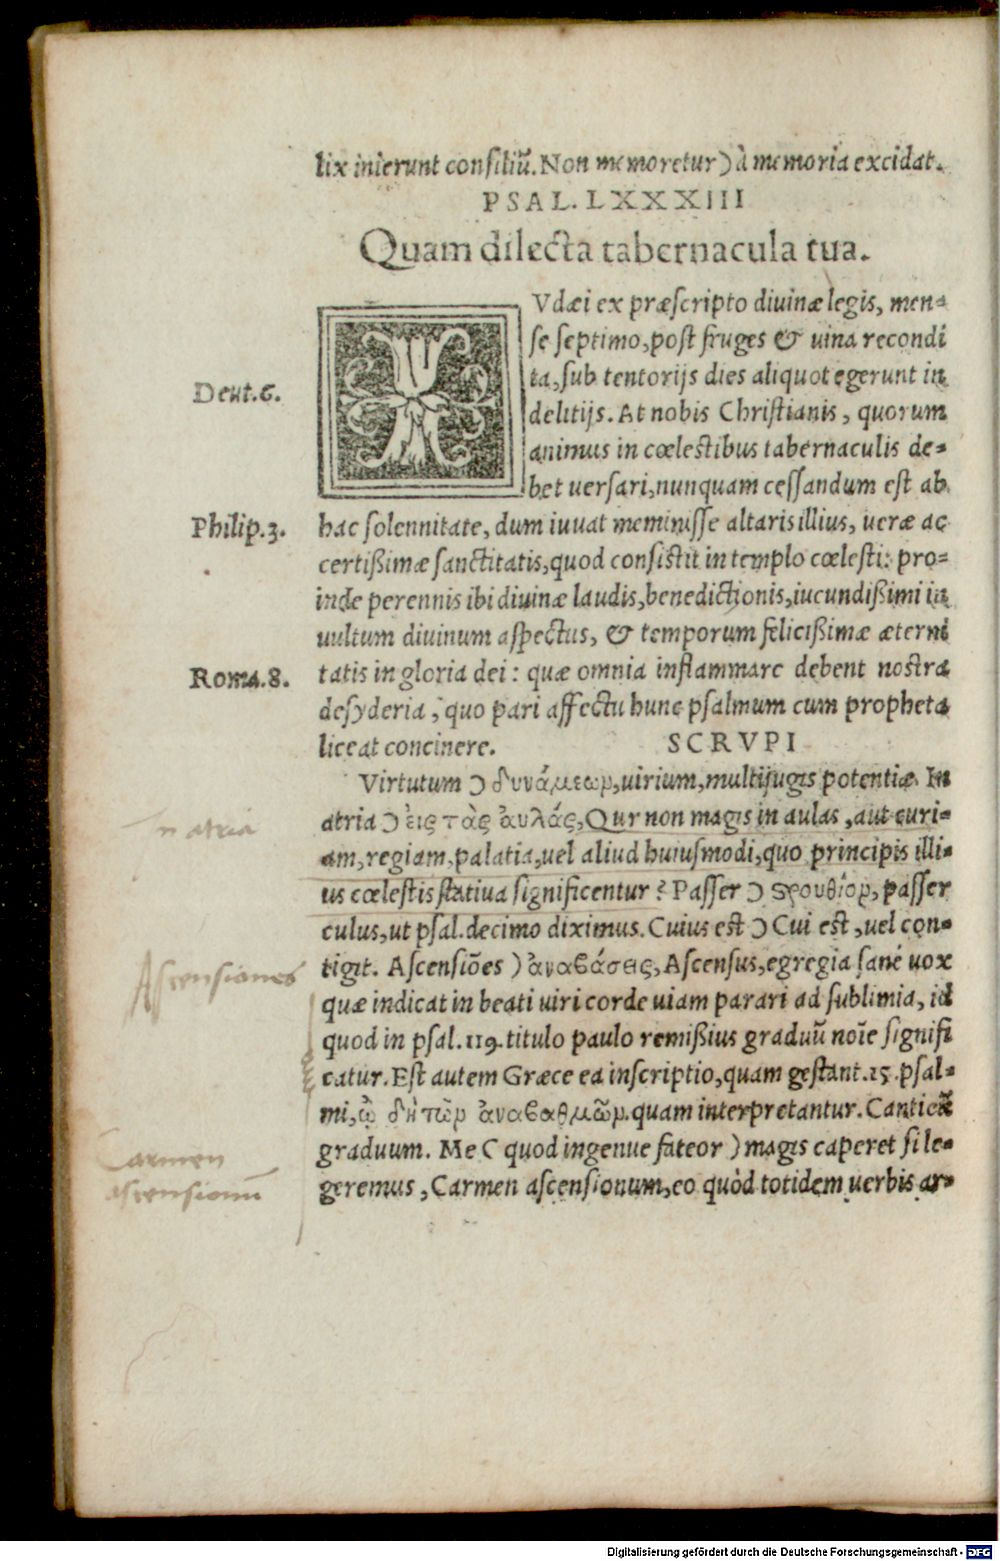 lix inierunt consiliū. Non memoretur) à memoria excidat.
PSAL. LXXXIII
Quam dilecta tabernacula tua.
IVdæi ex præscripto diuinæ legis, men-
se septimo, post fruges & uina recondi
Deut. 6.
ta, sub tentorijs dies aliquot egerunt in
delitijs. At nobis Christianis, quorum
animus in cœlestibus tabernaculis de-
bet uersari, nunquam cessandum est ab
Philip. 3.
hac solennitate, dum iuuat meminisse altaris illius, ueræ ac
certißimæ sanctitatis, quod consistit in templo cœlesti: pro-
inde perennis ibi diuinæ laudis, benedictionis, iucundißimi in
uultum diuinum aspectus, & temporum felicißimæ æterni
Roma. 8.
tatis in gloria dei: quæ omnia inflammare debent nostra
desyderia, quo pari affectu hunc psalmum cum propheta
liceat concinere. SCRVPI
Virtutum Ɔ δυνάμεωρ, uirium, multijugis potentiæ. In
In atria
atria Ɔ ἐις τὰς ἀυλάς, Qur non magis in aulas, aut curi-
am, regiam, palatia, uel aliud huiusmodi, quo principis illi-
us cœlestis statiua significentur? Passer Ɔ ςρουθίορ, passer
culus, ut psal. decimo diximus. Cuius est Ɔ Cui est, uel con-
Ascensiones
tigit. Ascensiões ) ἀναβάσεις, Ascensus, egregia sanè uox
quæ indicat in beati uiri corde uiam parari ad sublimia, id
quod in psal. 119. titulo paulo remißius graduū noīe signifi
catur. Est autem Græce ea inscriptio, quam gestant. 15. psal-
mi, ᾠδὴ τῶρ ἀναβαθμῶρ. quam interpretantur. Canticū
Carmen
graduum. Me C quod ingenue fateor ) magis caperet si le-
ascensionū
geremus, Carmen ascensionum, eo quòd totidem uerbis ar-
Digitalisierung gefördert durch die Deutsche Forschungsgemeinschaft - DFG